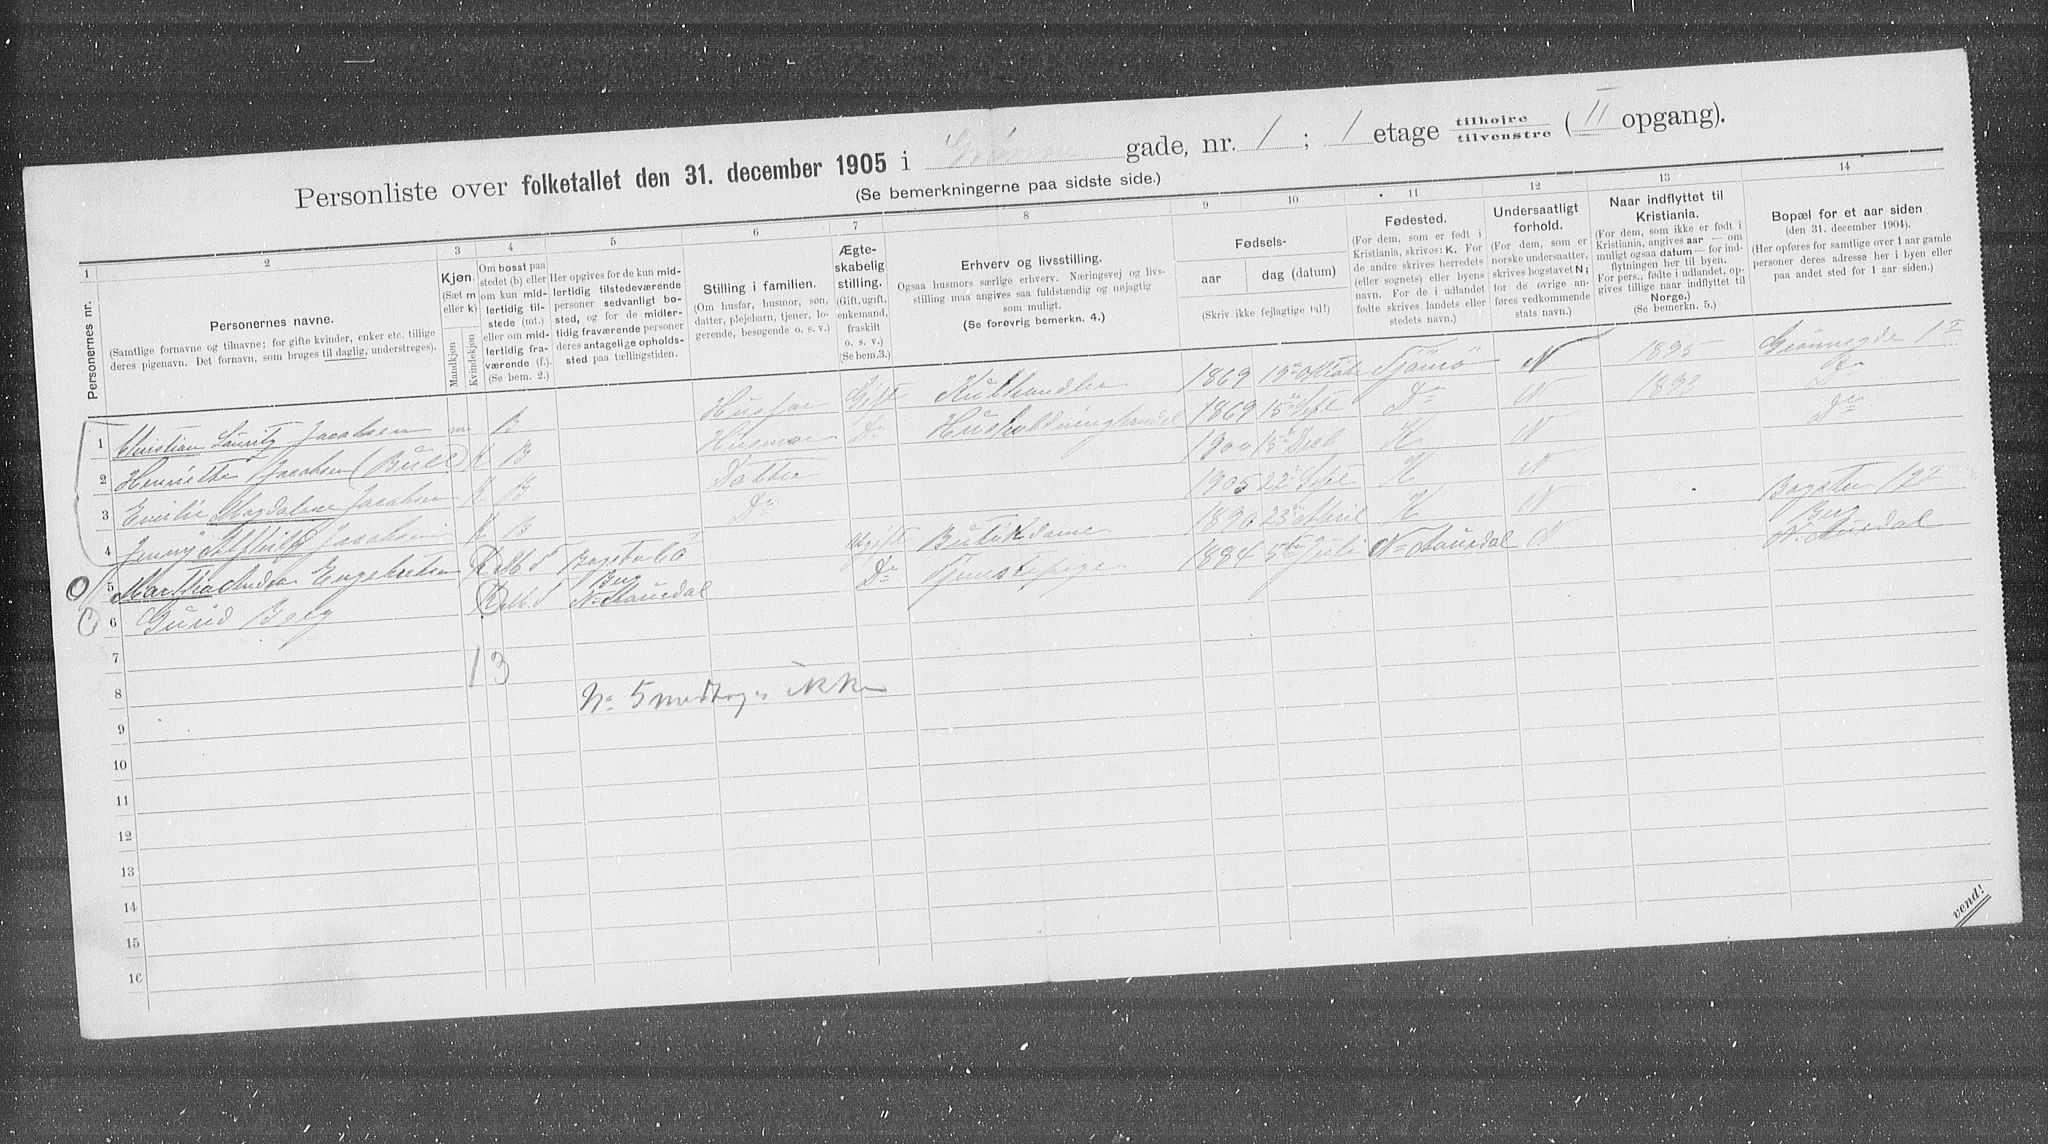 Personliste over folketallet den 31. december 1905 i Grønne gade, nr. 1 ; 1 etage tilhøjre tilvenstre ( II opgang).
(Se bemerkningerne paa sidste side.)
1 2 3 4 5 6 7 8 9 10 11 12 13 14
Personernes nr.
Personernes navne.
(Samtlige fornavne og tilnavne; for gifte kvinder, enker etc. tillige
deres pigenavn. Det fornavn, som bruges til daglig, understreges).
Kjøn.
(Sæt m
eller k)
Mandkjøn
Kvindekjøn
Om bosat paa
stedet (b) eller
om kun mid-
lertidig til-
stede (mt.)
eller om mid-
lertidig fra-
værende (f.).
(Se bem. 2.)
Her opgives for de kun mid-
lertidig tilstedeværende
personer sedvanligt bo-
sted, og for de midler-
tidig fraværende personer
deres antagelige opholds-
sted paa tællingstiden.
Stilling i familien.
(Om husfar, husmor, søn,
datter, plejebarn, tjener, lo-
gerende, besøgende o. s. v.)
Ægte-
skabelig
stilling.
(Gift, ugift,
enkemand,
fraskilt
o. s. v.)
(Se bem.3.)
Erhverv og livsstilling.
Ogsaa husmors særlige erhverv. Næringsvej og livs-
stilling maa angives saa fuldstændig og nøjagtig
som muligt.
(Se forøvrig bemerkn. 4.)
Fødsels-
aar
dag (datum)
(Skriv ikke fejlagtige tal!)
Fødested.
(For dem, som er født i
Kristiania, skrives: K. For
de andre skrives herredets
(eller sognets) eller byens
navn. For de i udlandet
fødte skrives landets eller
stedets navn.)
Undersaatligt
forhold.
(For dem, som er
norske undersaatter,
skrives bogstavet N;
for de øvrige an-
føres vedkommende
stats navn.)
Naar indflyttet til
Kristiania.
(For dem, som ikke er født i
Kristiania, angives aar — om
muligt ogsaa datum — for ind-
flytningen her til byen.
For pers., fødte i udlandet, op-
gives tillige naar indflyttet til
Norge.)
(Se bemerkn. 5.)
Bopæl for et aar siden
(den 31. december 1904).
(Her opføres for samtlige over 1 aar gamle
personer deres adresse her i byen eller
paa andet sted for 1 aar siden.)
1 Christian Lauritz Jacobsen m B Husfar Gift Kulhandler 1869 19 Oktobr Tjömö N 1895 Grønnegde 1
2 Henriette Jacobsen (Bull) K B Husmor Do Husholdningshandel 1869 15 Sept Do N 1893 Do
3 Emilie Magdalene Jacobsen K B Datter 1900 15 Desb K N Do
4 Jenny Alfhild Jacobsen K B Do 1905 22 Sept K N
5 Martha Engebretsen K M.T Bogstv. Ugift Butikdame 1890 23 April K N Bogstv
6 Gunid Berg K M.T Berg N. Aurdal Do Tjenestepige 1884 5 Juli N. Aurdal N Berg N. Aurdal
7
13
8 No 5 medtages ikke
9
10
11
12
13
14
15
16
vend!